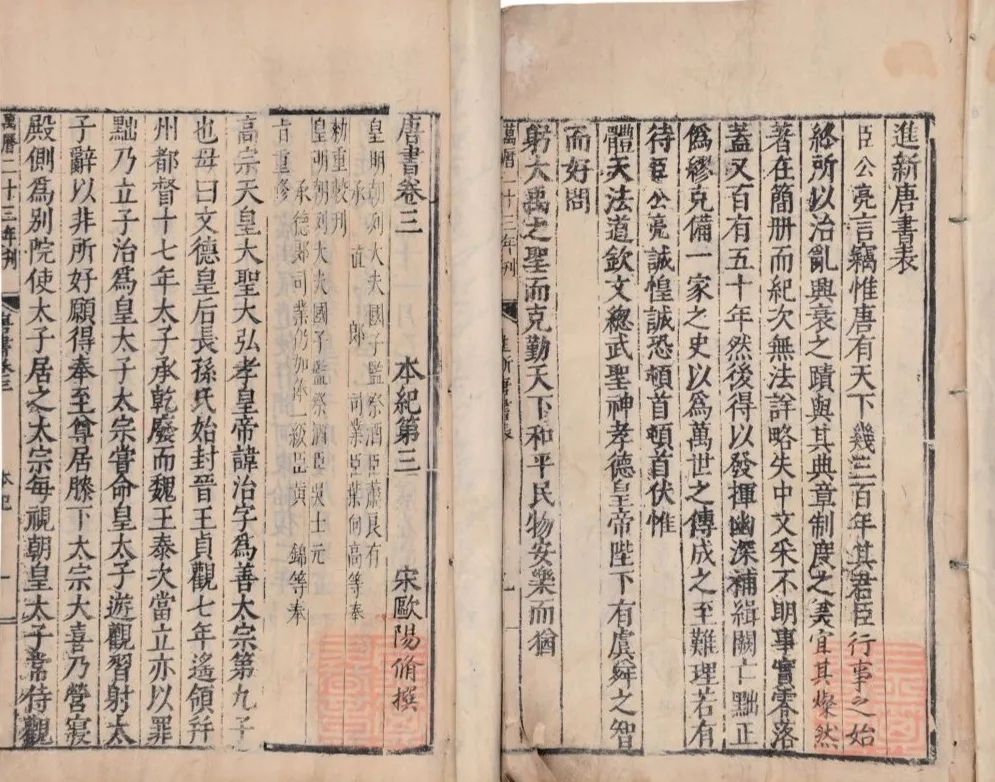 進新唐書表
臣公亮言竊惟唐有天下幾三百年其君臣行事之始
終所以治亂興衰之蹟與其典章制度之美宜其燦然
著在簡册而紀次無法詳略失中文采不明事實零落
蓋又百有五十年然後得以發揮幽深補緝闕亡黜正
僞繆克備一家之史以爲萬世之傳成之至難理若有
待臣公亮誠惶誠恐頓首頓首伏惟
體天法道欽文總武聖神孝德皇帝陛下有虞舜之智
而好問
躬大禹之聖而克勤天下和平民物安樂而猶
萬曆二十三年刊
進新唐書表
唐書卷三 本紀第三 宋歐陽脩撰
皇明朝列大夫國子監祭酒臣蕭良有
承直郎司業臣葉向高等奉
勅重較刊
皇明朝列大夫國子監祭酒臣吳士元
承德郎司業仍加俸一級臣黃錦等奉
旨重修
高宗天皇大聖大弘孝皇帝諱治字爲善太宗第九子
也母曰文德皇后長孫氏始封晉王貞觀七年遙領幷
州都督十七年太子承乾廢而魏王泰次當立亦以罪
黜乃立子治爲皇太子太宗嘗命皇太子遊觀習射太
子辭以非所好願得奉至尊居膝下太宗大喜乃營寢
殿側爲別院使太子居之太宗每視朝皇太子常侍觀
萬曆二十三年刊
唐書卷三
本紀
一